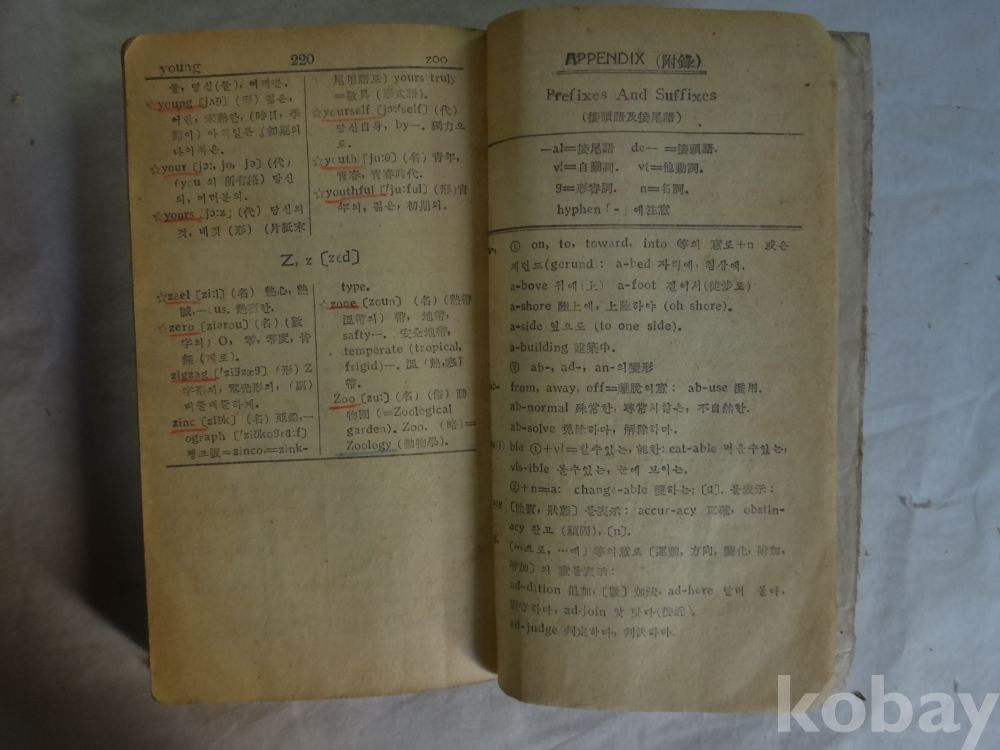 young 220 zoo
들, 당신(들), 여러분.
☆young [jʌŋ] (形) 젊은,
어린, 未熟한, (時日, 季
節이) 아직일은 初期의
나이적은.
☆your [jɔ:, jo, jə] (代)
(you 의 所有格) 당신
의, 여러분의.
☆yours [jɔ:z] (代) 당신의
것, 네것 (形) (片紙末
尾用語로) yours truly
=敬具 (形式語).
☆yourself [jɔ:'self] (代)
당신自身, by—. 獨力으
로.
☆youth [ju:θ] (名) 青年,
青春, 青春時代.
☆youthful ['ju:ful] (形) 青
年의, 젊은, 初期의.
Z, z [zed]
☆zeel [zi:l] (名) 熱心, 熱
誠,—ous. 熱烈한.
☆zero [ziərou] (名) (數
字의) O, 零, 零度, 皆
無 (계로).
zigzag ['zigzæg] (形) Z
字形의, 電光形의, (副)
비틀비틀하게.
zinc [ziŋk] (名) 亞鉛,—
ograph ['ziŋkogrɑ:f]
찡크版=zinco,=zink-
type.
☆zone [zoun] (名) (熱帶
溫帶의) 帶, 地帶,
safty—. 安全地帶,
temperate (tropical,
frigid)—. 溫 (熱,寒)
帶.
Zoo [zu:] (名) (俗) 動
物園 (=Zoological
garden). Zoo. (略)=
Zoology (動物學).
APPENDIX (附錄)
Prefixes And Suffixes
(接頭語及接尾語)
—al=接尾語 de—=接頭語.
vi=自動詞. vt=他動詞.
g=形容詞. n=名詞.
hyphen「-」에注意
① on, to, toward, into 等의 意로+n 或은
께런드(gerund): a-bed 자리에, 침상에.
a-bove 위에(上) a-foot 걸어서(徒步로)
a-shore 陸上에, 上陸하야 (oh shore).
a-side 옆으로 (to one side).
a-building 建築中.
② ab-, ad-, an-의變形
from, away, off=離脫의意: ab-use 濫用.
ab-normal 殊常한, 尋常치않은, 不自然한.
ab-solve 免除하다, 解除하다.
ble ①+vt=할수있는, 能한: eat-able 먹을수있는,
vis-ible 볼수있는, 눈에 보이는.
②+n=a: change-able 變하는; [a]. 를表示:
acy [性質, 狀態] 를表示: accur-acy 正確, obstin-
acy 완고 (頑固), [n].
[…으로, …에] 等의意로 [運動, 方向, 變化, 附加,
增加] 의 意를表示:
ad-dition 追加, [數] 加法, ad-here 달려 붙다,
하다, ad-join 맞 닿다(接近).
ad-judge 判定하다, 判決하다.
kobay